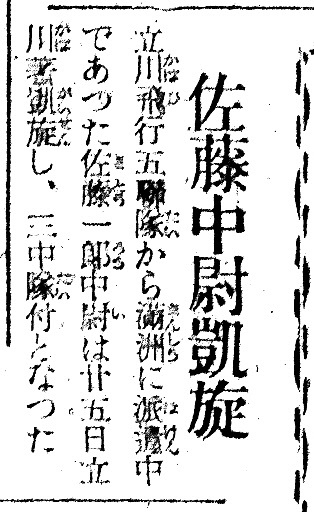 佐藤中尉凱旋
立川飛行五聯隊から滿洲に派遣中
であつた佐藤一郎中尉は廿五日立
川著凱旋し、三中隊付となつた